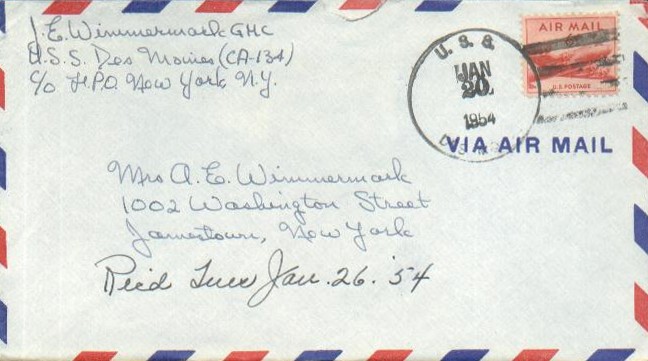 J.E. Wimmermark GMC
U.S.S. Des Moines (CA-134)
c/o F.P.O. New York N.Y.
U.S.S.
JAN
20
1954
AIR MAIL
U.S. POSTAGE
VIA AIR MAIL
Mrs A.E. Wimmermark
1002 Washington Street
Jamestown, New York
Rec'd Tues Jan. 26. '54